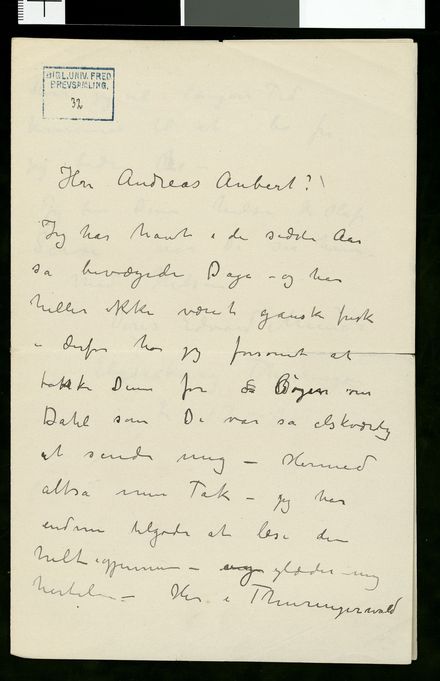 BIBL.UNIV. FRED.
BREVSAMLING.
32
Herr Andreas Aubert!
Jeg har havt i de sidste Aar
så bevægede Dage – og har
heller ikke været ganske frisk
– derfor har jeg forsømt at
takke Dem for Bogen om
Dahl som De var så elskværdig
at sende mig – Hermed
altså min Tak – jeg har
endnu tilgode at læse den
helt igjennem – glæder mig
– Her i Thuringerwald